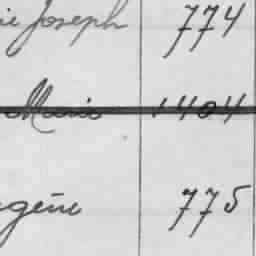 ie Joseph 774
Marie 1404
gène 775